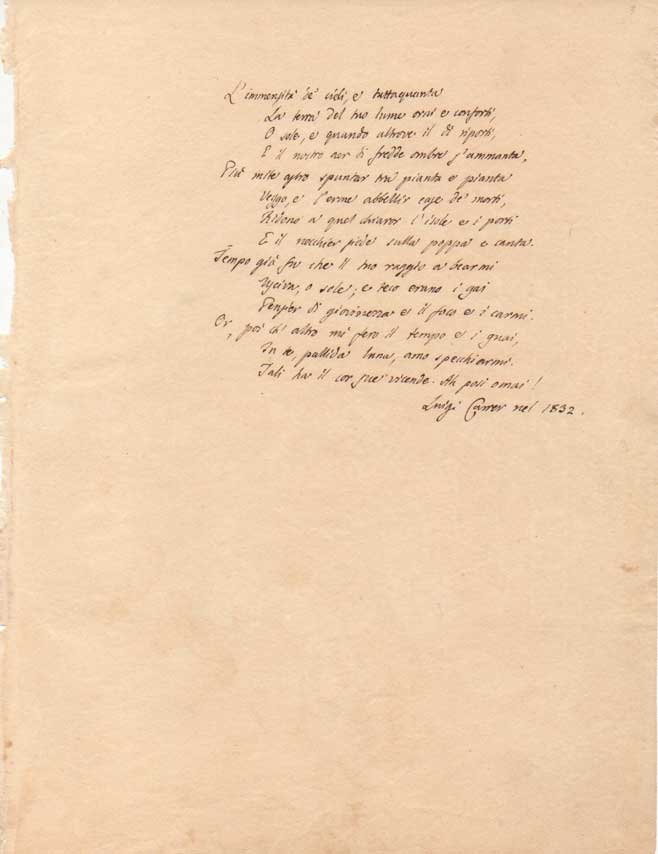 L'immensità de' cieli, e tuttaquanta
La terra del tuo lume orni e conforti,
O sole, e quando altrove il dì riporti,
E il nostro aer di fredde ombre s'ammanta,
Più mite astro spuntar tra pianta e pianta
Veggo, e l'erme abbellir case de' morti,
Ridono a quel chiaror l'isole e i porti
E il nocchier siede sulla poppa e canta.
Tempo già fu che il tuo raggio a bearmi
Usciva, o sole, e teco erano i gai
Pensier di giovinezza e il foco e i carmi.
Or, poi ch' altro mi fero il tempo e i guai,
In te, pallida luna, amo specchiarmi.
Tali ha il cor sue vicende. Ah posi omai!
Luigi Carrer nel 1832.